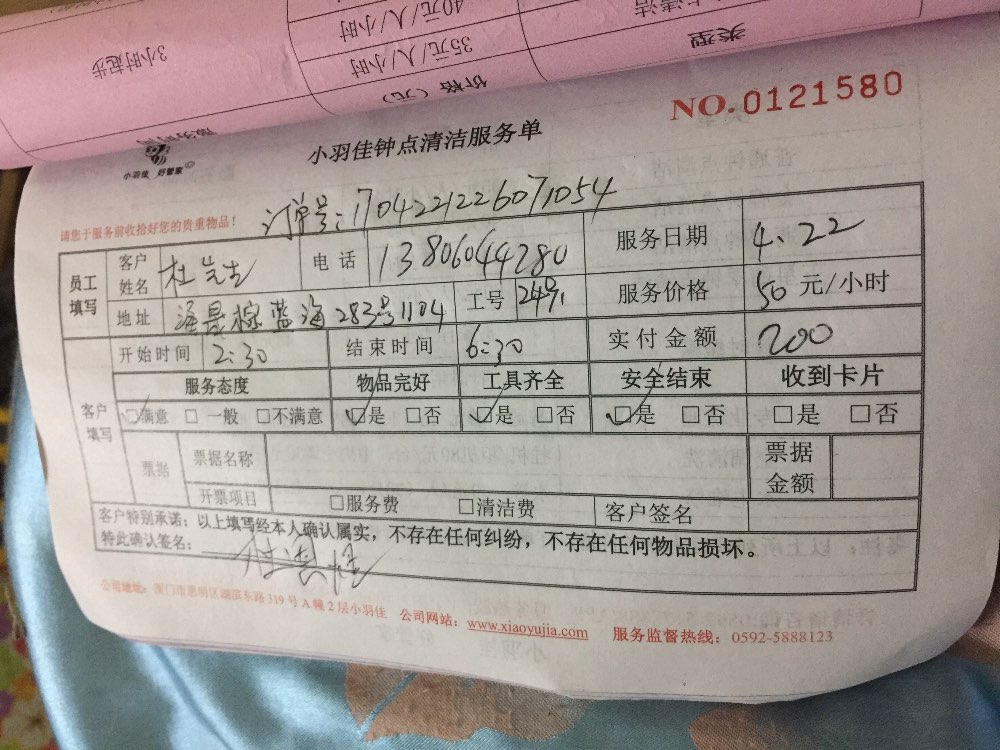 3小时起步
40元/人/小时
35元/人/小时
点清洁
价格（元）
类型
NO.0121580
小羽佳 好管家
小羽佳钟点清洁服务单
请您于服务前收拾好您的贵重物品！
订单号：1704221226071054
员工填写 客户姓名 杜先生 电话 13806044280 服务日期 4.22
地址 海景棕蓝海283号1104 工号 24号 服务价格 50 元/小时
客户填写 开始时间 2:30 结束时间 6:30 实付金额 200
服务态度 物品完好 工具齐全 安全结束 收到卡片
☑满意 □一般 □不满意 ☑是 □否 ☑是 □否 ☑是 □否 □是 □否
票据 票据名称 票据金额
开票项目 □服务费 □清洁费 客户签名
客户特别承诺：以上填写经本人确认属实，不存在任何纠纷，不存在任何物品损坏。
特此确认签名：
公司地址：厦门市思明区湖滨东路319号A幢2层小羽佳 公司网站：www.xiaoyujia.com 服务监督热线：0592-5888123